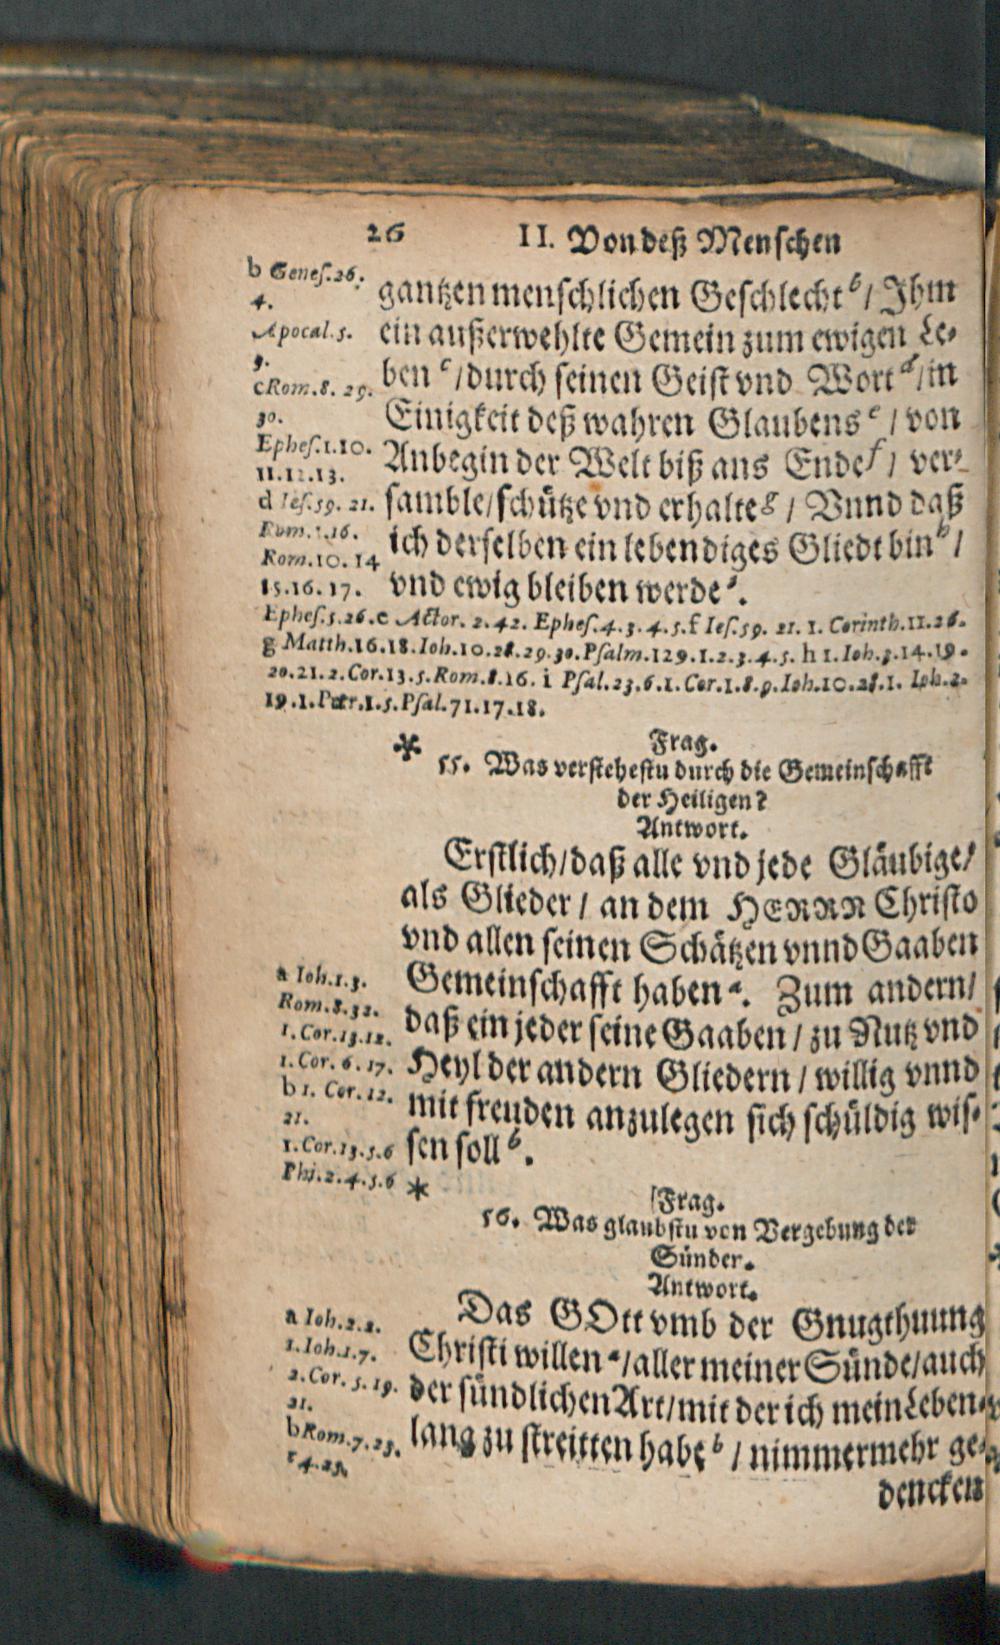 26 II. Von deß Menschen
b Genes.26.
4.
Apocal.5.
9.
c Rom.8. 29.
30.
Ephes.1.10.
11.12.13.
d Ies.59. 21.
Rom.1.16.
Rom.10.14
15.16.17.
gantzen menschlichen Geschlecht b / Ihm
ein außerwehlte Gemein zum ewigen Le-
ben c / durch seinen Geist vnd Wort d / in
Einigkeit deß wahren Glaubens e / von
Anbegin der Welt biß ans Ende f / ver-
samble / schütze vnd erhalte g / Vnnd daß
ich derselben ein lebendiges Gliedt bin h /
vnd ewig bleiben werde i.
Ephes.5.26.e Actor. 2.42. Ephes.4.3.4.5.f Ies.59. 21. 1. Corinth.11.26.
g Matth.16.18.Ioh.10.28.29.30.Psalm.129.1.2.3.4.5. h 1.Ioh.3.14.19.
20.21.2.Cor.13.5.Rom.8.16. i Psal.23.6.1.Cor.1.8.9.Ioh.10.28.1. Ioh.2.
19.1.Petr.1.5.Psal.71.17.18.
* Frag.
55. Was verstehestu durch die Gemeinschafft
der Heiligen?
Antwort.
Erstlich / daß alle vnd jede Gläubige /
als Glieder / an dem HERRN Christo
vnd allen seinen Schätzen vnnd Gaaben
Gemeinschafft haben a. Zum andern /
daß ein jeder seine Gaaben / zu Nutz vnd
Heyl der andern Gliedern / willig vnnd
mit freuden anzulegen sich schüldig wis-
sen soll b.
a Ioh.1.3.
Rom.8.32.
1.Cor.13.12.
1.Cor. 6.17.
b 1. Cor. 12.
21.
1.Cor.13.5.6
Phi.2.4.5.6 *
Frag.
56. Was glaubstu von Vergebung der
Sünder.
Antwort.
Das GOtt vmb der Gnugthuung
Christi willen a / aller meiner Sünde / auch
der sündlichen Art / mit der ich mein Leben-
lang zu streitten habe b / nimmermehr ge-
dencken
a Ioh.2.2.
1.Ioh.1.7.
2.Cor. 5.19.
21.
b Rom.7.23.